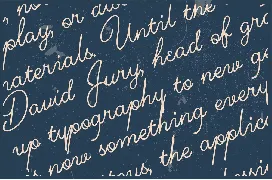 play, or
materials. Until the
David Jury, head of
up typography to new
is now something every
the applic